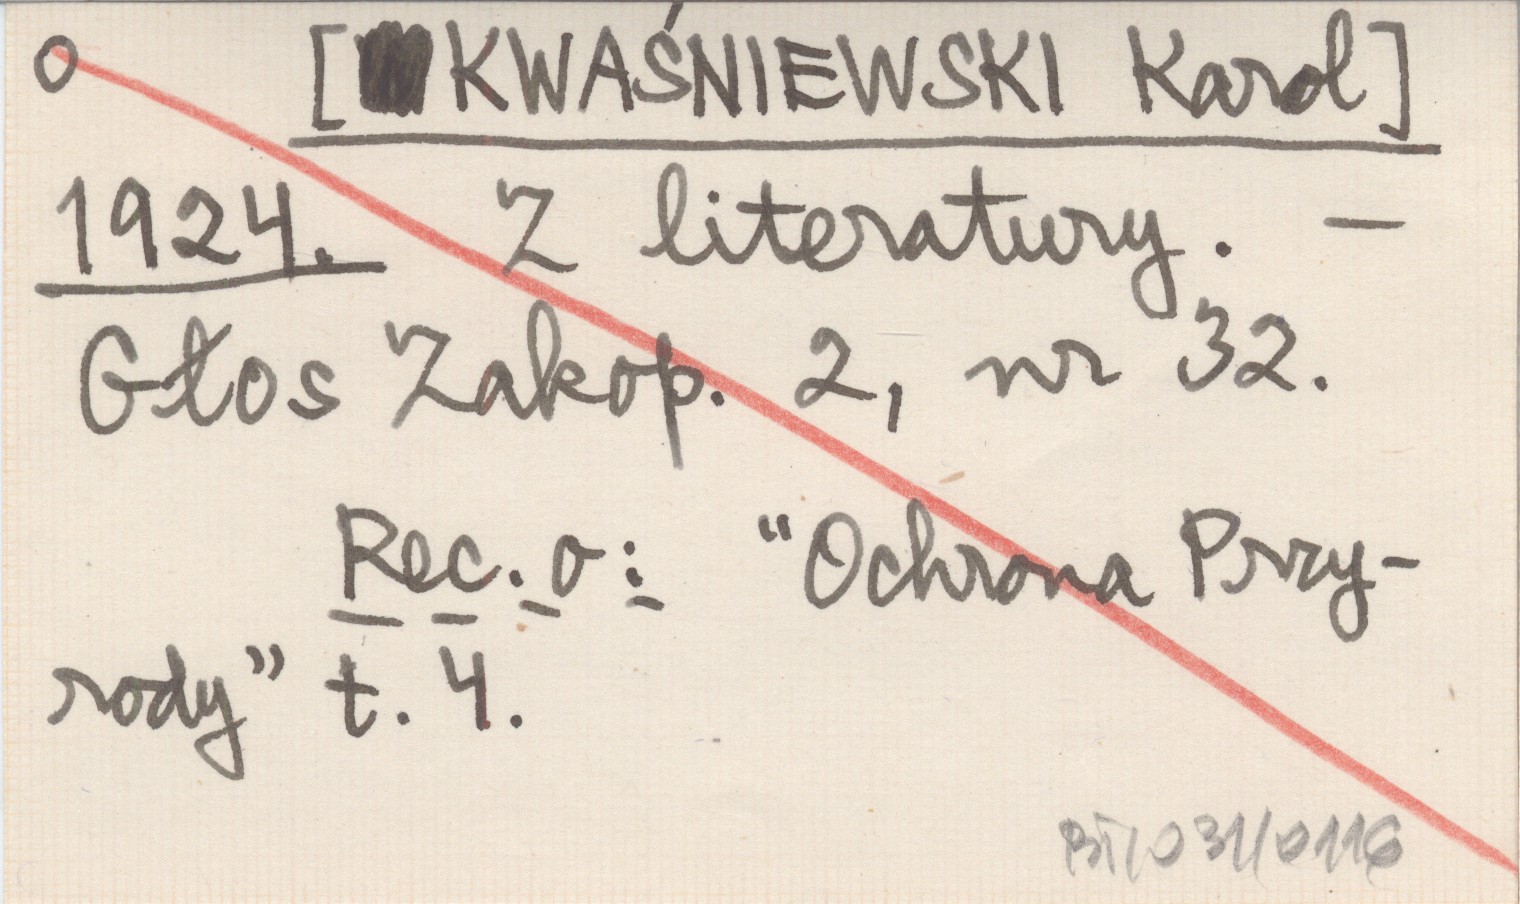 o [KWAŚNIEWSKI Karol]
1924. Z literatury. —
Głos Zakop. 2, nr 32.
Rec. o: "Ochrona Przy-
rody" t. 4.
BT/031/0116